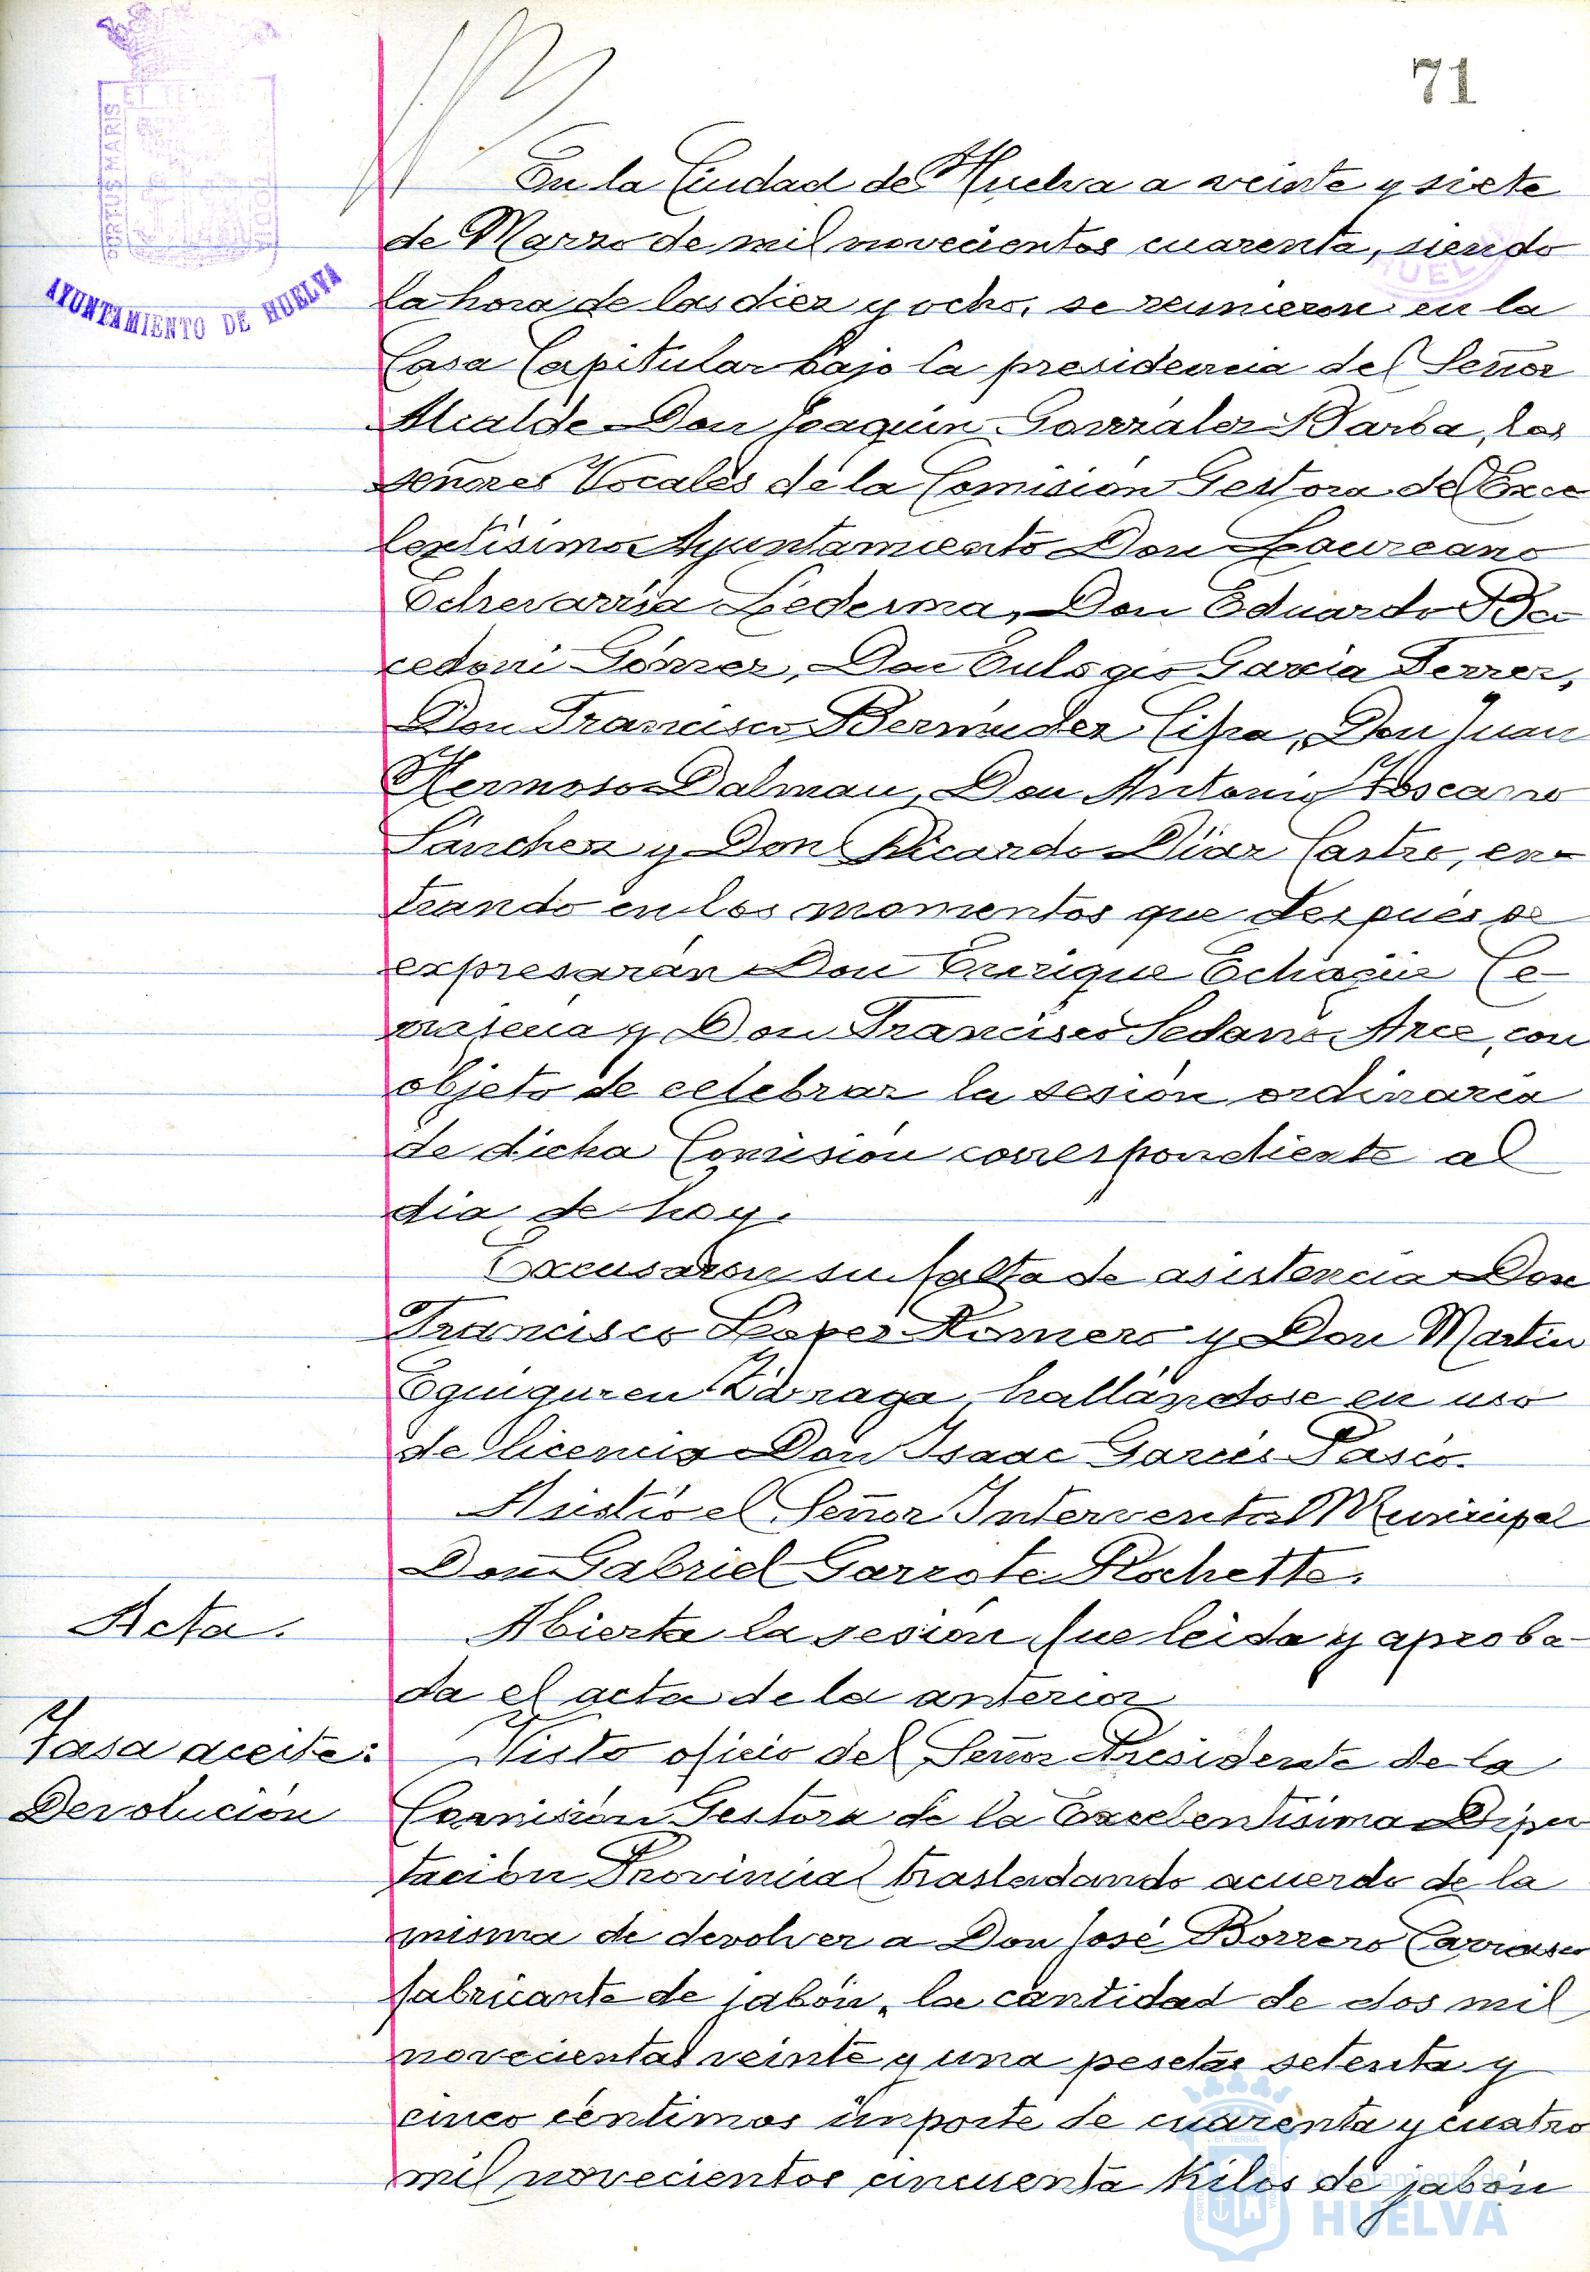 71
PORTUS MARIS
ET TERRE
AYUNTAMIENTO DE HUELVA
En la Ciudad de Huelva a veinte y siete
de Marzo de mil novecientos cuarenta, siendo
la hora de las diez y ocho, se reunieron en la
Casa Capitular bajo la presidencia del Señor
Alcalde Don Joaquín González Barba, los
señores Vocales de la Comisión Gestora del Exce
lentísimo Ayuntamiento Don Laureano
Echevarría Ledesma, Don Eduardo
Gómez, Don Eulogio García Ferrer,
Don Francisco Bermúdez Cipa, Don Juan
Hermoso Dalmau, Don Antonio Toscano
Sánchez y Don Ricardo Díaz Castro, en-
trando en los momentos que después se
expresarán Don Enrique Echagüe
y Don Francisco Sedano Arce, con
objeto de celebrar la sesión ordinaria
de dicha Comisión correspondiente al
día de hoy.
Excusaron su falta de asistencia Don
Francisco López Romero y Don Martín
Eguiguren Zárraga, hallándose en uso
de licencia Don Isaac Garcés
Asistió el Señor Interventor Municipal
Don Gabriel Garrote Rochette.
Acta.
Abierta la sesión fue leida y aproba-
da el acta de la anterior
Tasa aceite:
Devolución
Visto oficio del Señor Presidente de la
Comisión Gestora de la Excelentísima Dipu
tación Provincial trasladando acuerdo de la
misma de devolver a Don José Borrero Carrasco
fabricante de jabón, la cantidad de dos mil
novecientas veinte y una pesetas setenta y
cinco céntimos importe de cuarenta y cuatro
mil novecientos cincuenta kilos de jabón
Ayuntamiento de
HUELVA